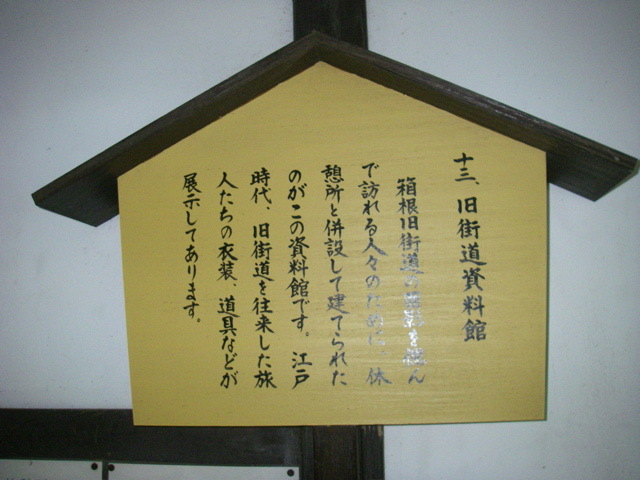 十三、旧街道資料館
箱根旧街道の面影を偲ん
で訪れる人々のために、休
憩所と併設して建てられた
のがこの資料館です。江戸
時代、旧街道を往来した旅
人たちの衣装、道具などが
展示してあります。